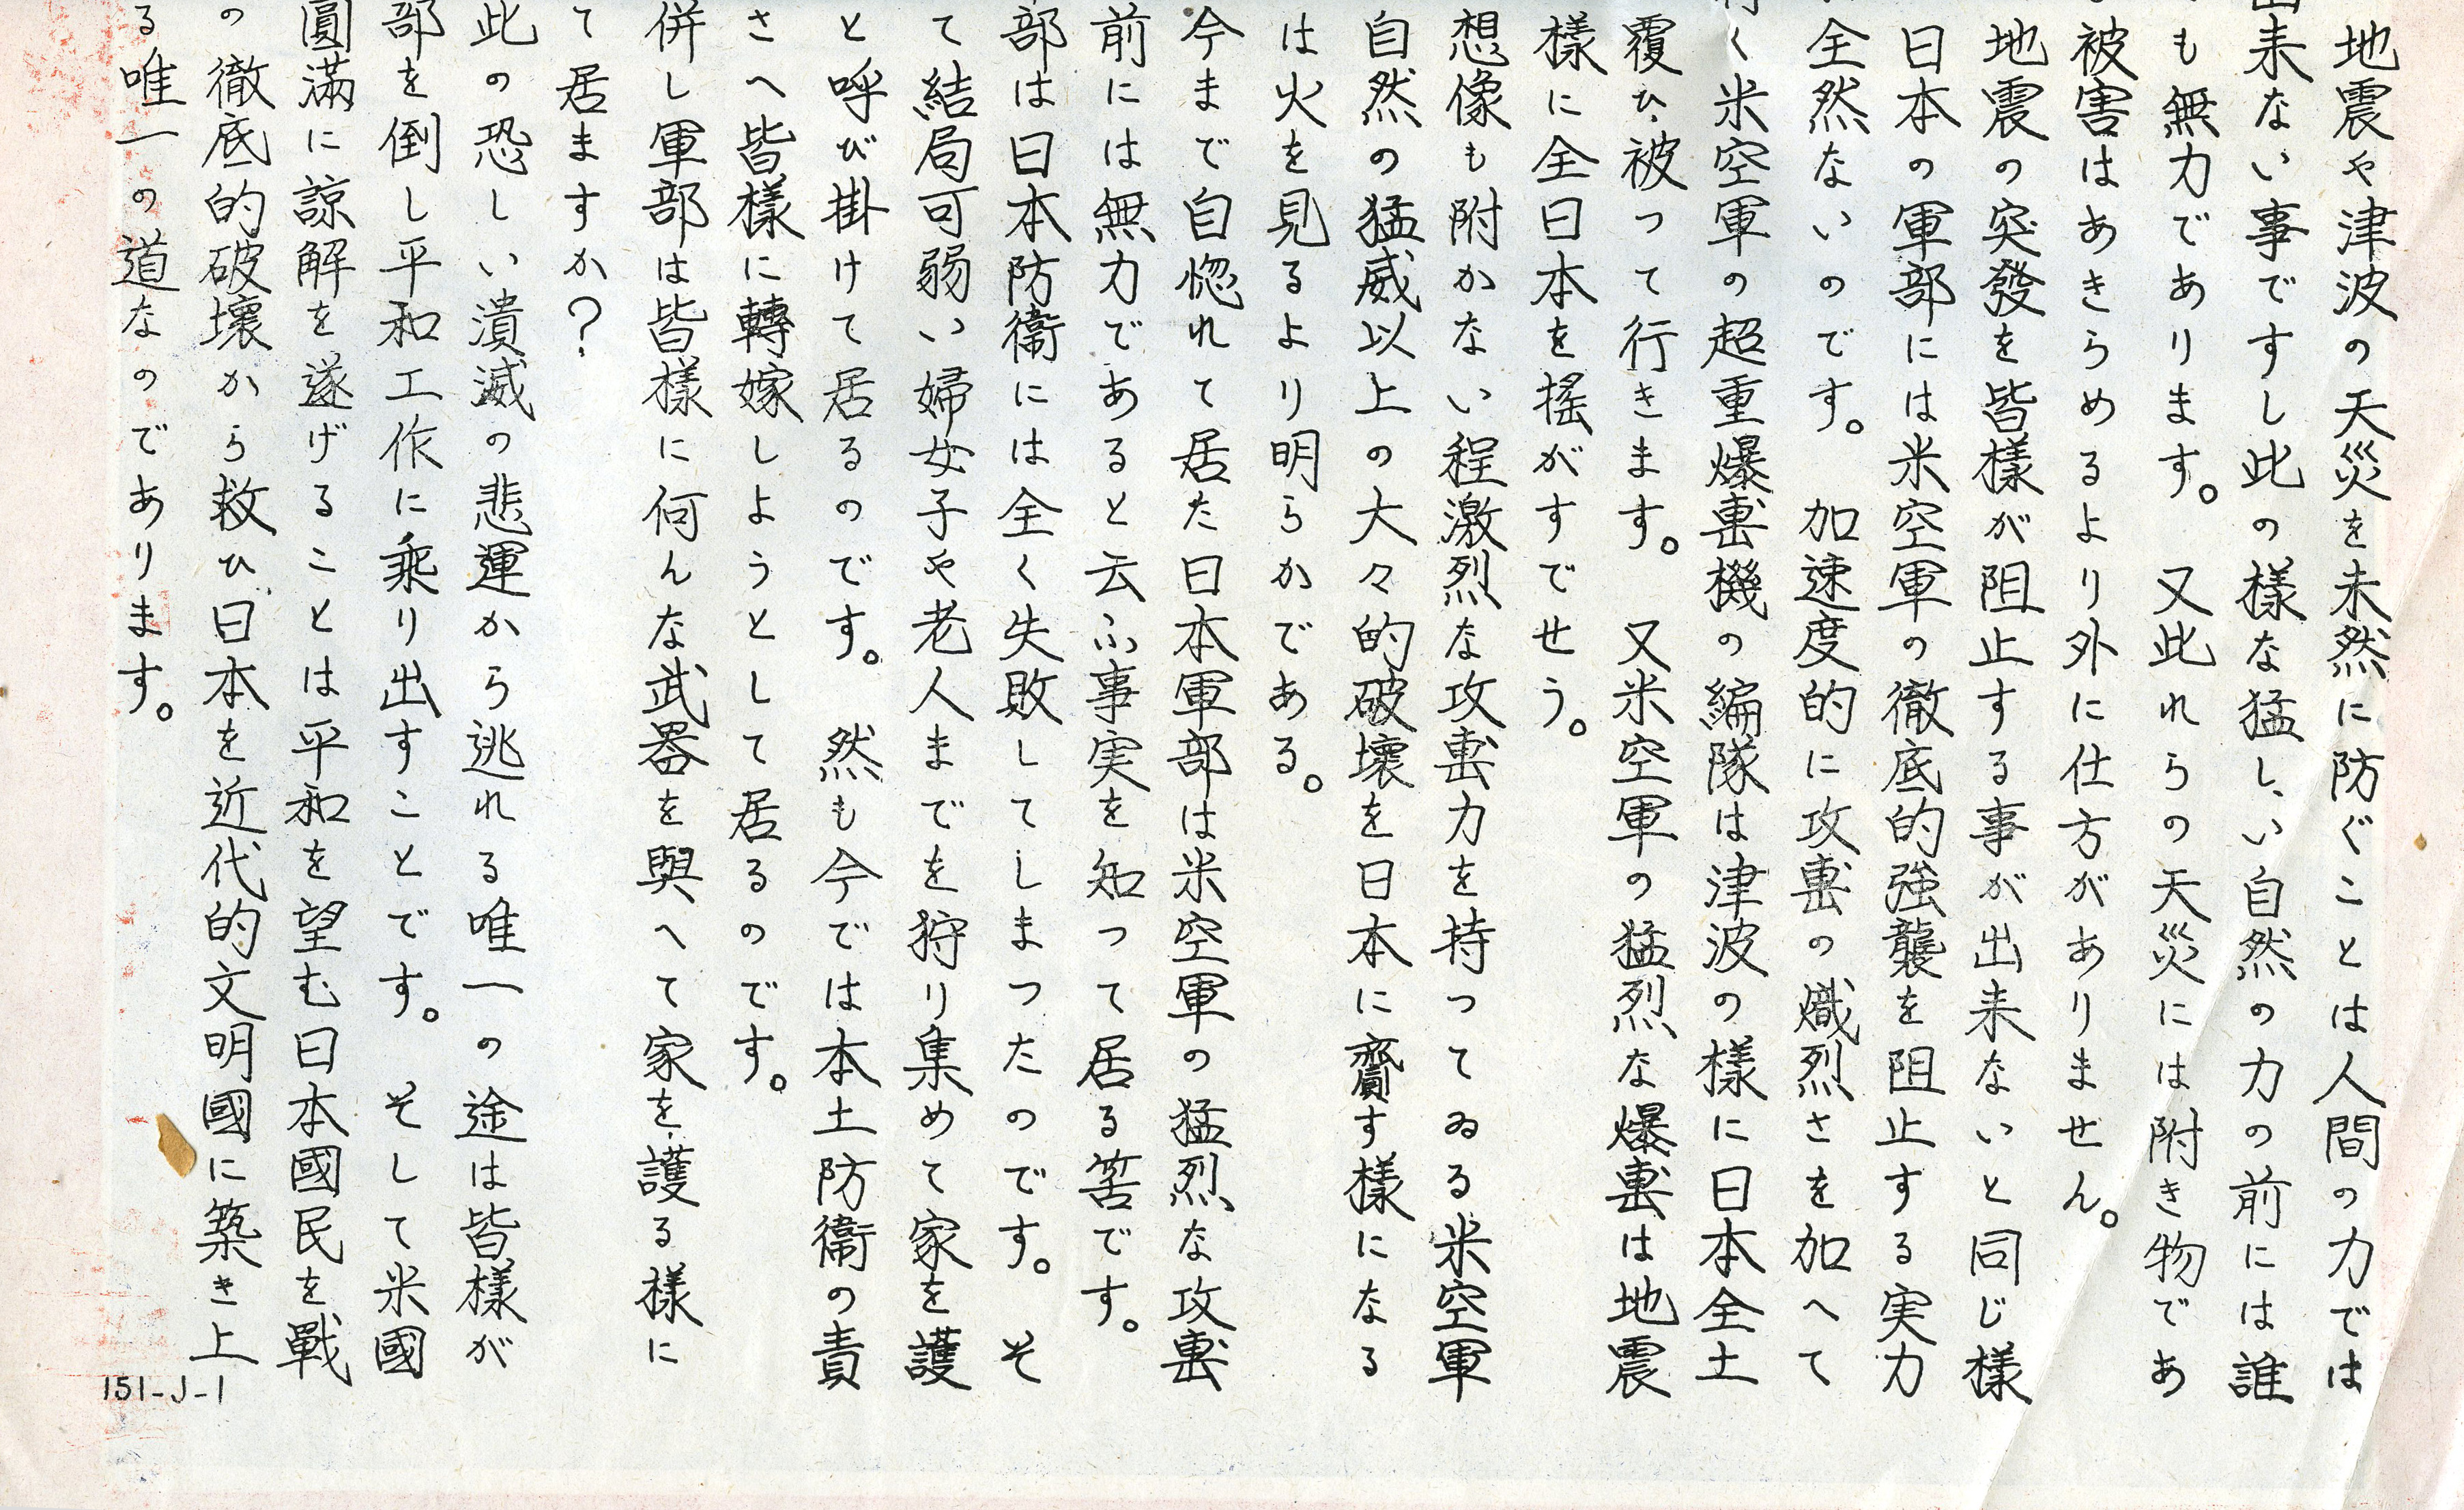 地震や津波の天災を未然に防ぐことは人間の力では
出来ない事ですし此の様な猛しい自然の力の前には誰
も無力であります。又此れらの天災には附き物であ
被害はあきらめるより外に仕方がありません。
地震の突發を皆様が阻止する事が出来ないと同じ様
日本の軍部には米空軍の徹底的強襲を阻止する実力
全然ないのです。加速度的に攻擊の熾烈さを加へて
行く米空軍の超重爆擊機の編隊は津波の様に日本全土
覆ひ被って行きます。又米空軍の猛烈な爆擊は地震
様に全日本を搖がすでせう。
想像も附かない程激烈な攻擊力を持ってゐる米空軍
自然の猛威以上の大々的破壊を日本に齎す様になる
は火を見るより明らかである。
今まで自惚れて居た日本軍部は米空軍の猛烈な攻擊
前には無力であると云ふ事実を知って居る筈です。
部は日本防衞には全く失敗してしまつたのです。そ
て結局可弱い婦女子や老人までを狩り集めて家を護
と呼び掛けて居るのです。然も今では本土防衞の責
さへ皆樣に轉嫁しようとして居るのです。
併し軍部は皆樣に何んな武器を與へて家を護る様に
て居ますか?
此の恐しい潰滅の悲運から逃れる唯一の途は皆様が
部を倒し平和工作に乗り出すことです。そして米國
圓滿に諒解を遂げることは平和を望む日本國民を戰
の徹底的破壊から救ひ日本を近代的文明國に築き上
る唯一の道なのであります。
151-J-1